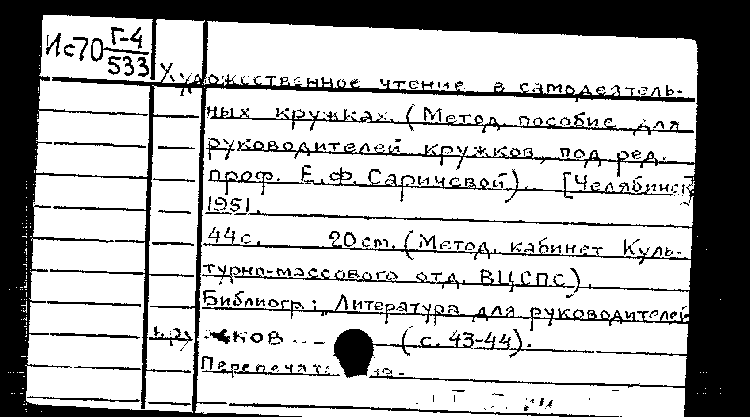 Ис70 Г-4
533
Художественное чтение в самодеятель-
ных кружках. (Метод. пособие для
руководителей кружков под ред.
проф. Е.Ф. Саричевой). [Челябинск]
1951.
44с. 20см. (Метод. кабинет Куль-
турно-массового отд. ВЦСПС).
Библиогр: „Литература для руководителей
круж­ков (с. 43-44).